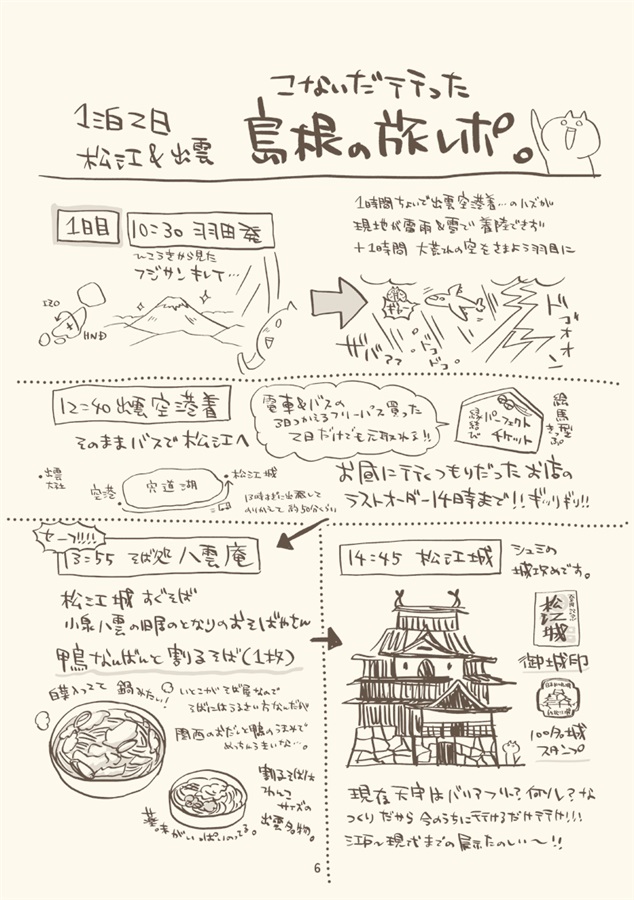 こないだ行った
1泊2日
松江&出雲
島根の旅レポ。
1日目
10:30 羽田発
ひこうきから見た
フジサンキレイ…
IZO
HND
1時間ちょいで出雲空港着…のハズが
現地が雷雨&雪で着陸できず
+1時間 大荒れの空をさまよう羽目に
ザバァァァ
ドコドコドコ
ドゴオオン
12:40 出雲空港着
そのままバスで松江へ
電車&バスの
3日つかえるフリーパス買った
2日だけでも元取れる!!
縁結び
パーフェクト
チケット
絵馬型
きっぷ
出雲
大社
空港
宍道湖
松江城
お昼に行くつもりだったお店の
ラストオーダー14時まで!!ギリギリ!!
セーフ!!!!
13:55 そば処 八雲庵
松江城すぐそば
小泉八雲の旧居のとなりのおそばやさん
鴨なんばんと割るそば(1枚)
白菜入ってて 鍋みたい!
いとこがそば屋なので
そばにはうるさい方なんだが
関西のおだしと鴨のうまみで
めっちゃうまいな…。
割るそばは
わんこ
サイズの
出雲名物。
薬味がいっぱいのってる。
14:45 松江城
シュミの
城攻めです。
松江城
御城印
100名城
スタンプ
現在天守はバリアフリー?何ソレ?な
つくりだから今のうちに行けるだけ行け!!!
江戸〜現代までの展示たのしい〜!!
6